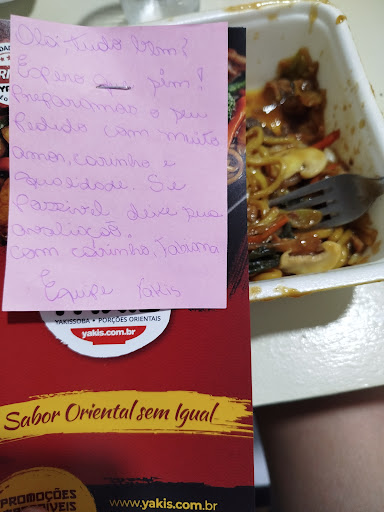 Olá, tudo bem?
Espero que sim!
Preparamos o seu
Pedido com muito
amor, carinho e
qualidade. Se
Possível deixe sua
avaliação.
com carinho, Tásima
Equipe Yakis
YAKISSOBA • PORÇÕES ORIENTAIS
yakis.com.br
Sabor Oriental sem Igual
PROMOÇÕES
www.yakis.com.br